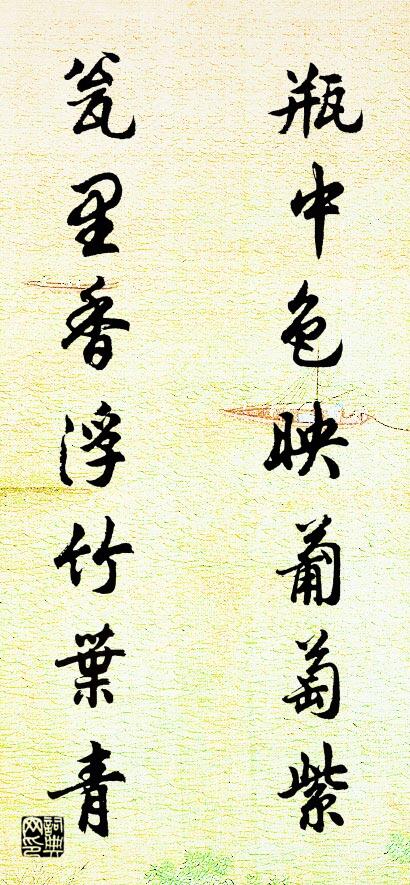 瓶中色映葡萄紫
瓮里香浮竹葉青
詞典网印